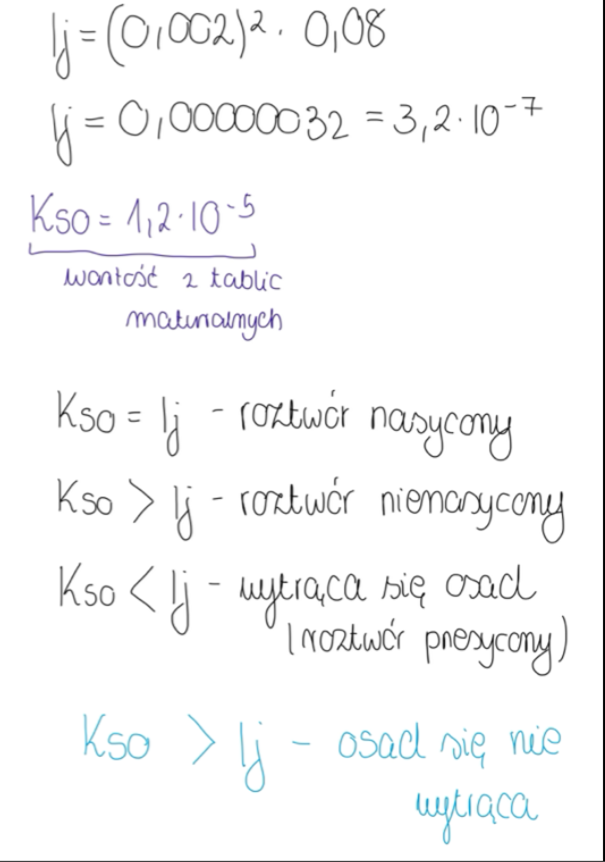 Ij = (0,002)² · 0,08
Ij = 0,00000032 = 3,2 · 10⁻⁷
Kso = 1,2 · 10⁻⁵
wartość z tablic
maturalnych
Kso = Ij - roztwór nasycony
Kso > Ij - roztwór nienasycony
Kso < Ij - wytrąca się osad
(roztwór przesycony)
Kso > Ij - osad się nie
wytrąca